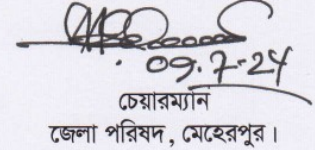 09.7-24
চেয়ারম্যান
জেলা পরিষদ, মেহেরপুর।